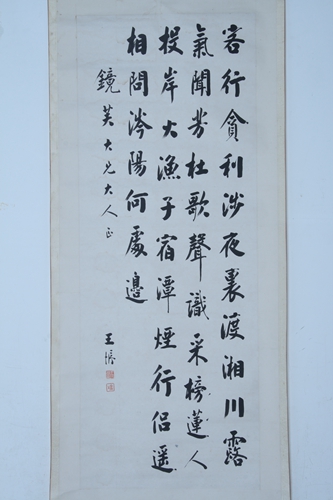 客行貪利涉夜裏渡湘川露
氣聞芳杜歌聲識采榜蓮人
投岸火漁子宿潭煙行侶遥
相問涔陽何處邊
鏡芙大兄大人正
王